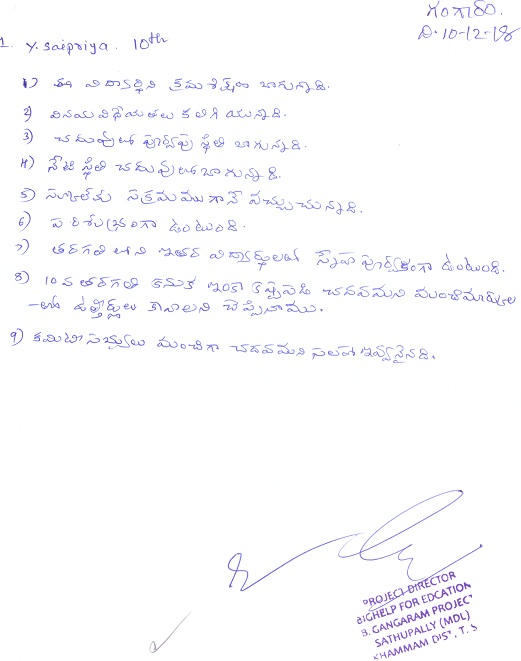 గంగారం.
D. 10-12-18
1. Y. Saipriya. 10th
1) ఈ విద్యార్థిని క్రమశిక్షణ బాగున్నది.
2) వినయవిధేయతలు కలిగి యున్నది.
3) చదువులో పూర్వపు స్థితి బాగున్నది.
4) నేటి స్థితి చదువులో బాగున్నది.
5) స్కూలుకు సక్రమముగానే వచ్చుచున్నది.
6) పరిశుభ్రంగా ఉంటుంది.
7) తరగతి లోని ఇతర విద్యార్థులతో స్నేహ పూర్వకంగా ఉంటుంది.
8) 10వ తరగతి కనుక ఇంకా కష్టపడి చదవమని మంచిమార్కుల
-తో ఉత్తీర్ణులు కావాలని చెప్పినాము.
9) కమిటీ సభ్యులు మంచిగా చదవమని సలహా ఇవ్వనైనది.
PROJECT DIRECTOR
BIGHELP FOR EDCATION
B. GANGARAM PROJECT
SATHUPALLY (MDL)
KHAMMAM DIST, T. S